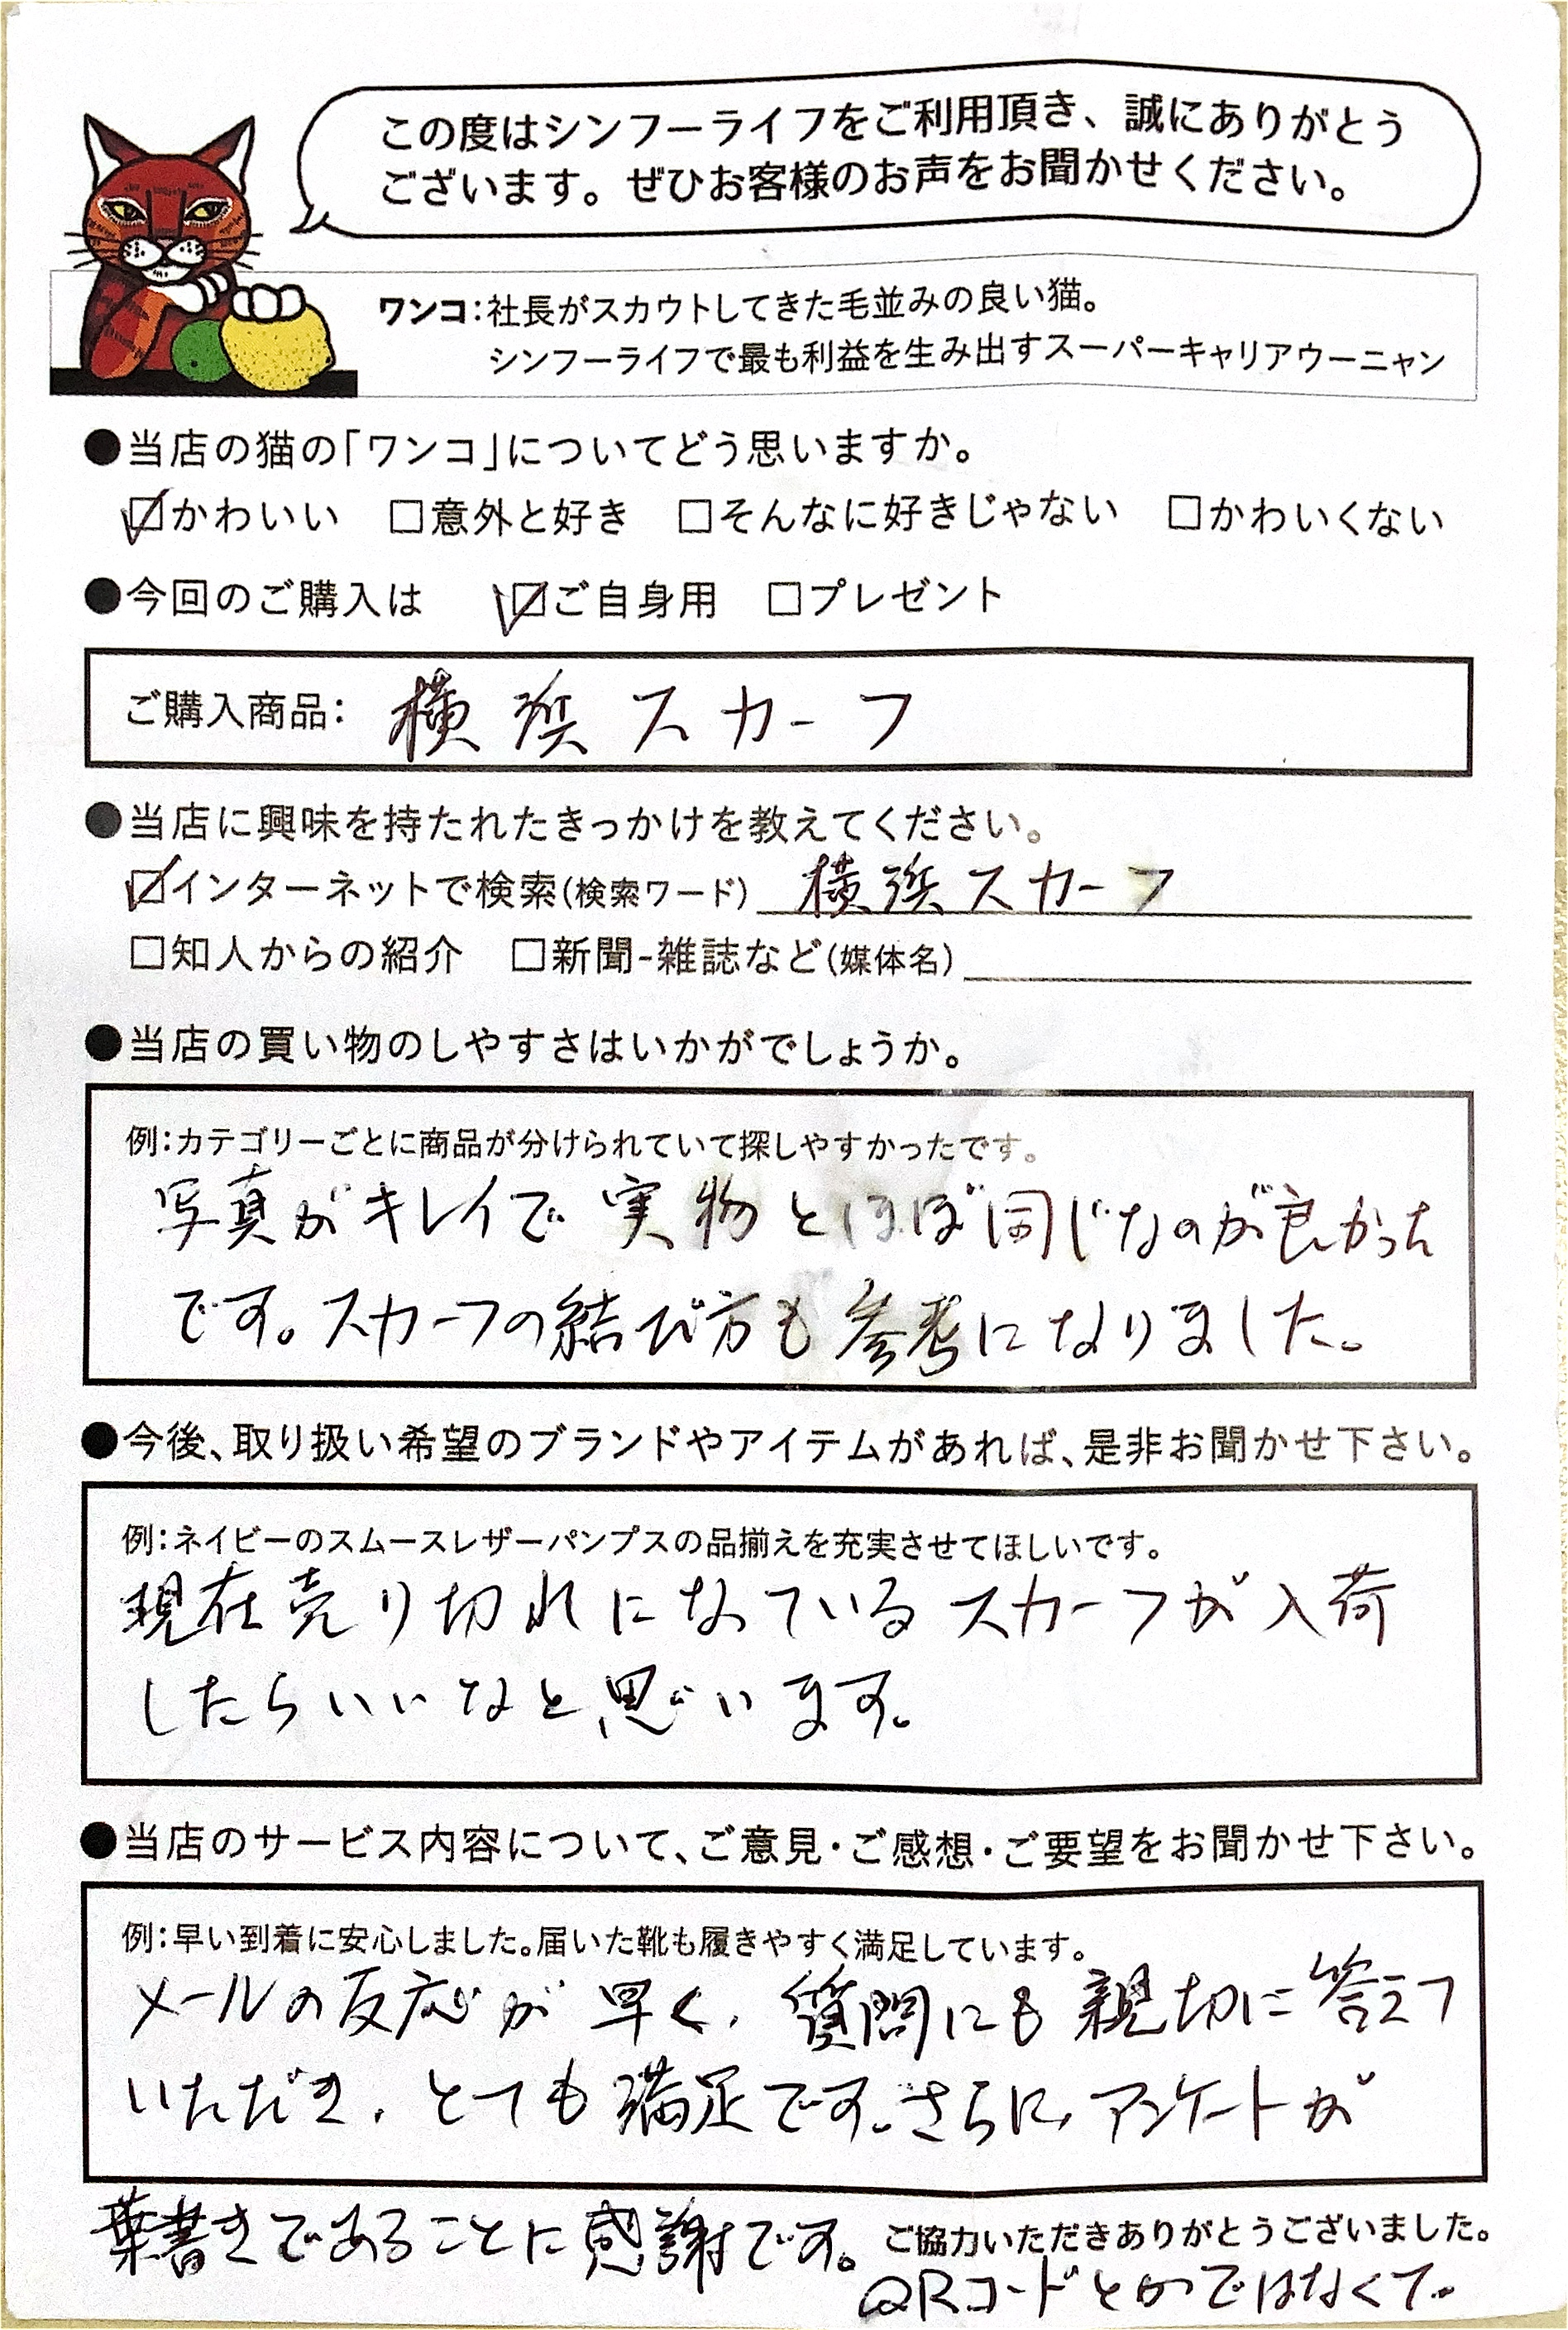 この度はシンフーライフをご利用頂き、誠にありがとう
ございます。ぜひお客様のお声をお聞かせください。
ワンコ：社長がスカウトしてきた毛並みの良い猫。
シンフーライフで最も利益を生み出すスーパーキャリアウーニャン
●当店の猫の「ワンコ」についてどう思いますか。
☑かわいい □意外と好き □そんなに好きじゃない □かわいくない
●今回のご購入は ☑ご自身用 □プレゼント
ご購入商品： 横浜スカーフ
●当店に興味を持たれたきっかけを教えてください。
☑インターネットで検索(検索ワード) 横浜スカーフ
□知人からの紹介 □新聞-雑誌など(媒体名)
●当店の買い物のしやすさはいかがでしょうか。
例：カテゴリーごとに商品が分けられていて探しやすかったです。
写真がキレイで実物とほぼ同じなのが良かった
です。スカーフの結び方も参考になりました。
●今後、取り扱い希望のブランドやアイテムがあれば、是非お聞かせ下さい。
例：ネイビーのスムースレザーパンプスの品揃えを充実させてほしいです。
現在売り切れになっているスカーフが入荷
したらいいなと思います。
●当店のサービス内容について、ご意見・ご感想・ご要望をお聞かせ下さい。
例：早い到着に安心しました。届いた靴も履きやすく満足しています。
メールの反応が早く、質問にも親切に答えて
いただき、とても満足です。さらに、アンケートが
葉書きであることに感謝です。
ご協力いただきありがとうございました。
QRコードとかではなくて。